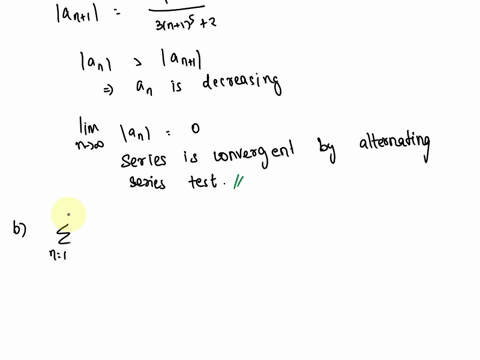 |a_{n+1}| = 1/(3(n+1)^5 + 2)
|a_n| > |a_{n+1}|
⇒ a_n is decreasing
lim n→∞ |a_n| = 0
series is convergent by alternating
series test. //
b) Σ n=1